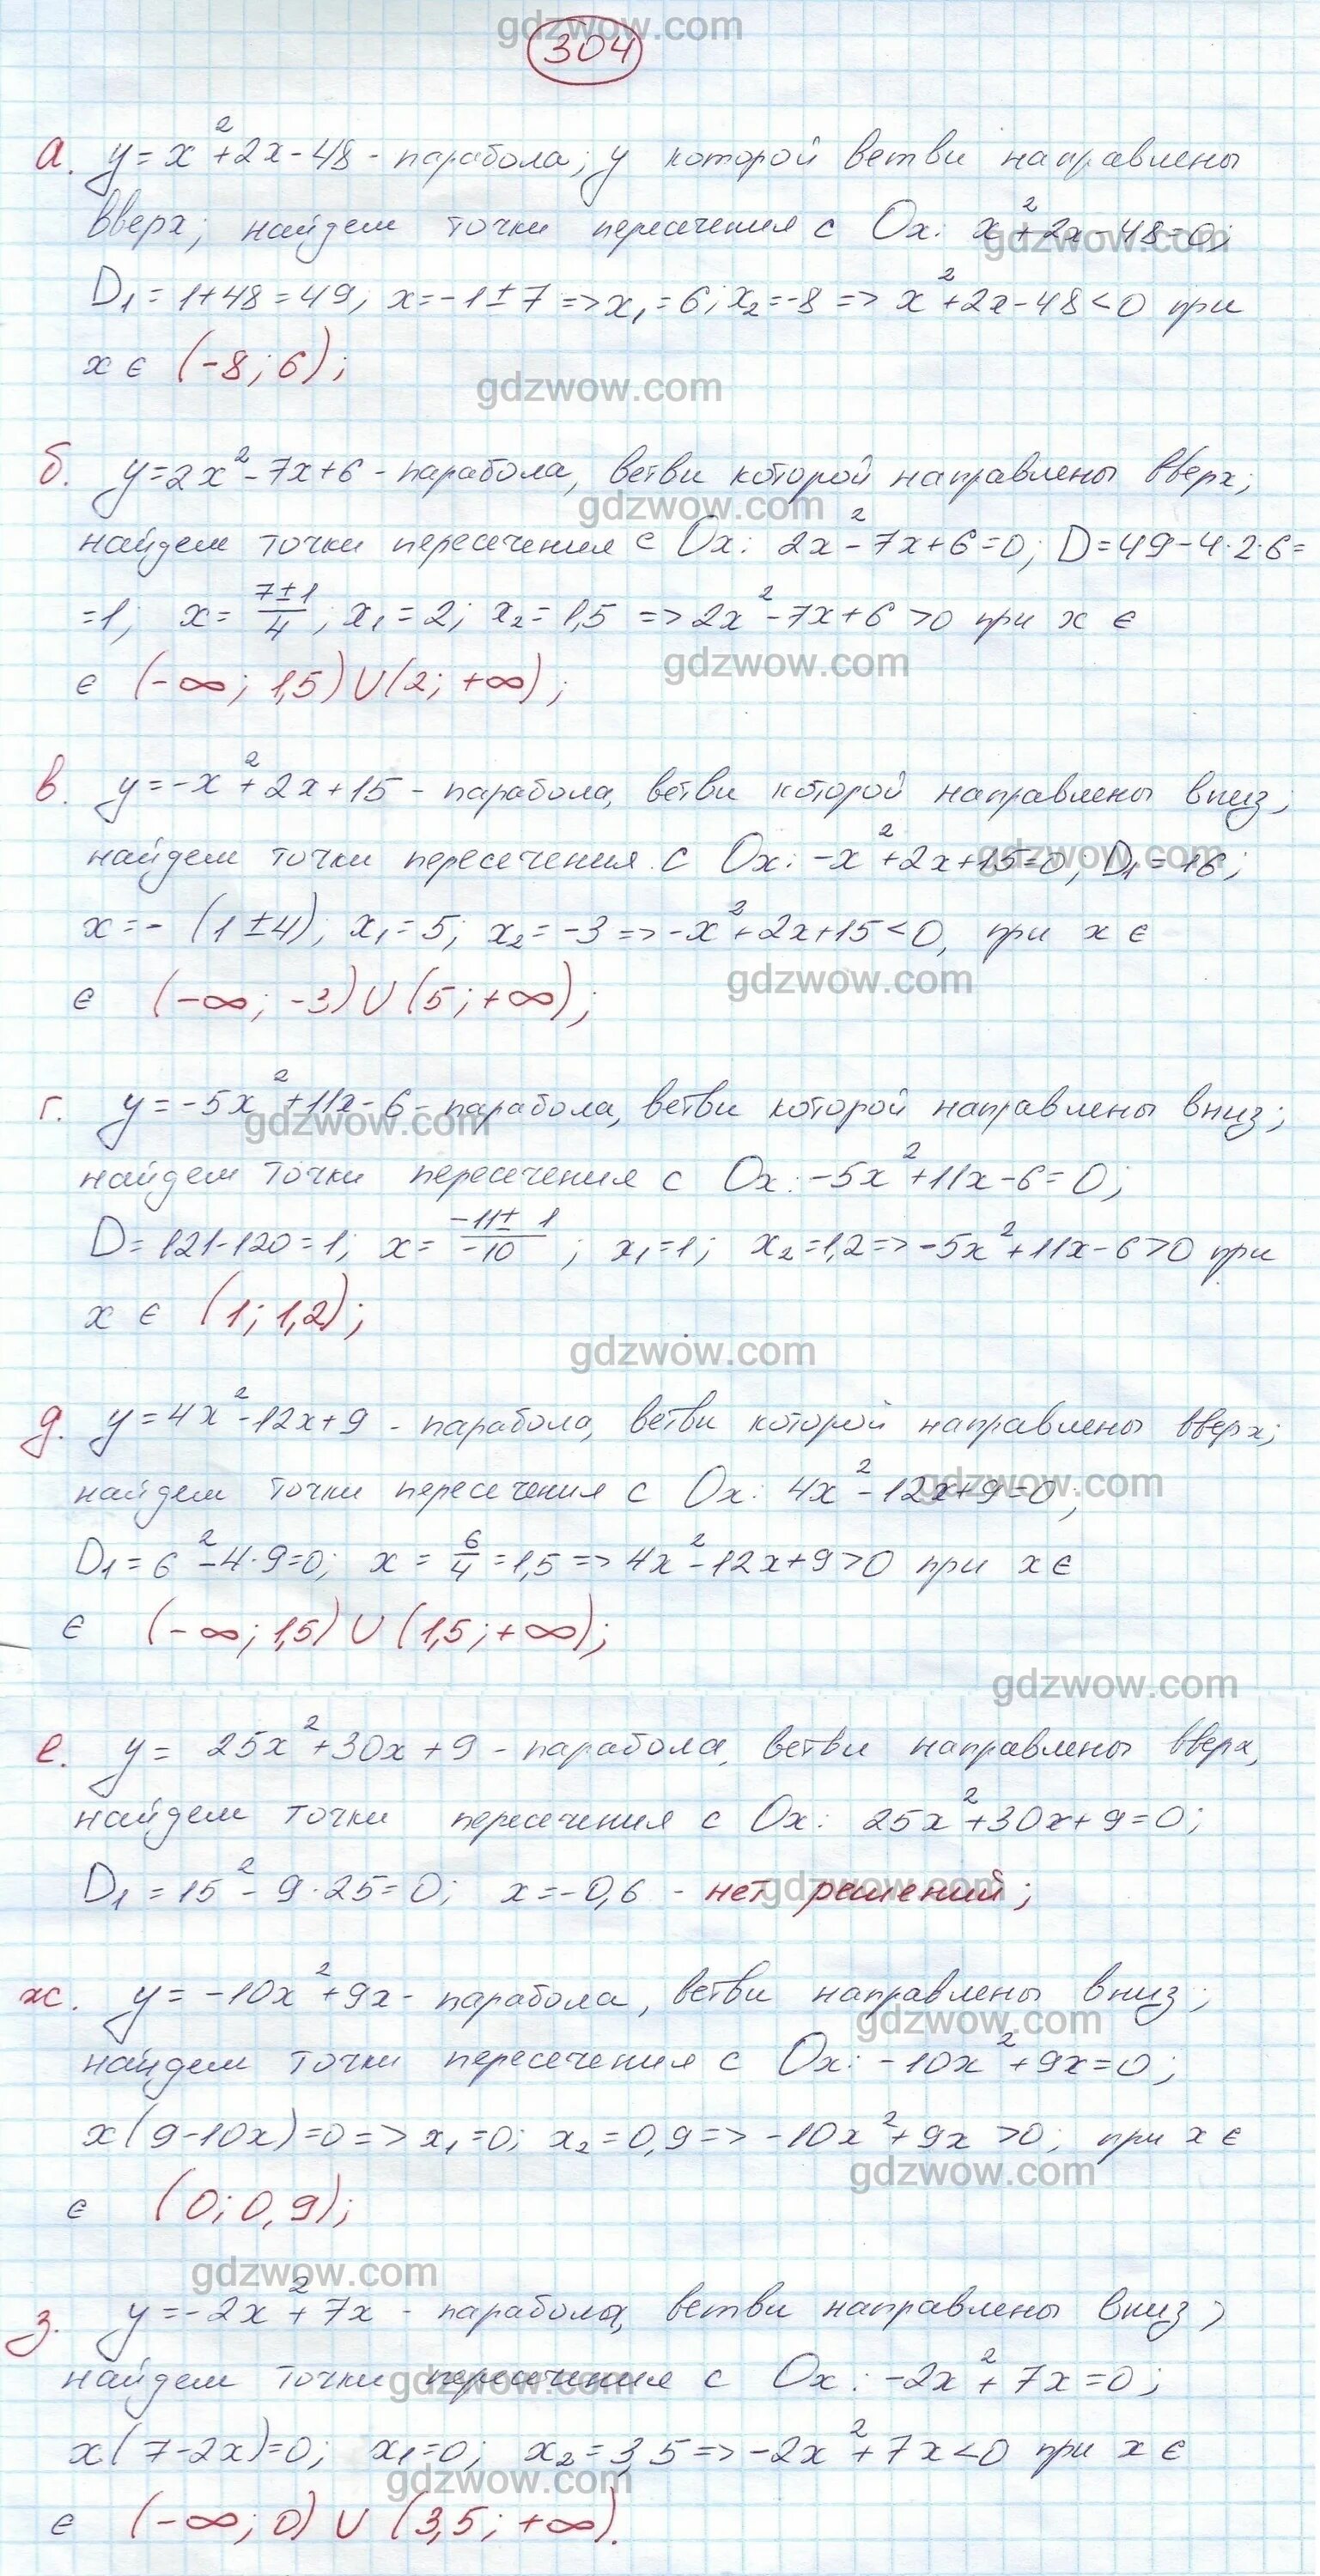 gdzwow.com
304
а. y = x² + 2x - 48 - парабола; у которой ветви направлены
вверх; найдем точки пересечения с Ox: x² + 2x - 48 = 0;
gdzwow.com
D₁ = 1 + 48 = 49; x = -1 ± 7 => x₁ = 6; x₂ = -8 => x² + 2x - 48 < 0 при
x ∈ (-8; 6);
gdzwow.com
б. y = 2x² - 7x + 6 - парабола, ветви которой направлены вверх;
gdzwow.com
найдем точки пересечения с Ox: 2x² - 7x + 6 = 0; D = 49 - 4·2·6 =
= 1; x = (7±1)/4; x₁ = 2; x₂ = 1,5 => 2x² - 7x + 6 > 0 при x ∈
gdzwow.com
∈ (-∞; 1,5) ∪ (2; +∞);
в. y = -x² + 2x + 15 - парабола, ветви которой направлены вниз;
найдем точки пересечения с Ox: -x² + 2x + 15 = 0; D₁ = 16;
gdzwow.com
x = -(1 ± 4); x₁ = 5; x₂ = -3 => -x² + 2x + 15 < 0, при x ∈
gdzwow.com
∈ (-∞; -3) ∪ (5; +∞);
г. y = -5x² + 11x - 6 - парабола, ветви которой направлены вниз;
gdzwow.com
найдем точки пересечения с Ox: -5x² + 11x - 6 = 0;
D = 121 - 120 = 1; x = (-11 ± 1)/(-10); x₁ = 1; x₂ = 1,2 => -5x² + 11x - 6 > 0 при
x ∈ (1; 1,2);
gdzwow.com
д. y = 4x² - 12x + 9 - парабола, ветви которой направлены вверх;
найдем точки пересечения с Ox: 4x² - 12x + 9 = 0;
gdzwow.com
D₁ = 6² - 4·9 = 0; x = 6/4 = 1,5 => 4x² - 12x + 9 > 0 при x ∈
∈ (-∞; 1,5) ∪ (1,5; +∞);
gdzwow.com
е. y = 25x² + 30x + 9 - парабола, ветви направлены вверх,
найдем точки пересечения с Ox: 25x² + 30x + 9 = 0;
D₁ = 15² - 9·25 = 0; x = -0,6 - нет решений;
gdzwow.com
ж. y = -10x² + 9x - парабола, ветви направлены вниз;
gdzwow.com
найдем точки пересечения с Ox: -10x² + 9x = 0;
x(9 - 10x) = 0 => x₁ = 0; x₂ = 0,9 => -10x² + 9x > 0; при x ∈
gdzwow.com
∈ (0; 0,9);
gdzwow.com
з. y = -2x² + 7x - парабола, ветви направлены вниз;
найдем точки пересечения с Ox: -2x² + 7x = 0;
gdzwow.com
x(7 - 2x) = 0; x₁ = 0; x₂ = 3,5 => -2x² + 7x < 0 при x ∈
gdzwow.com
∈ (-∞; 0) ∪ (3,5; +∞).